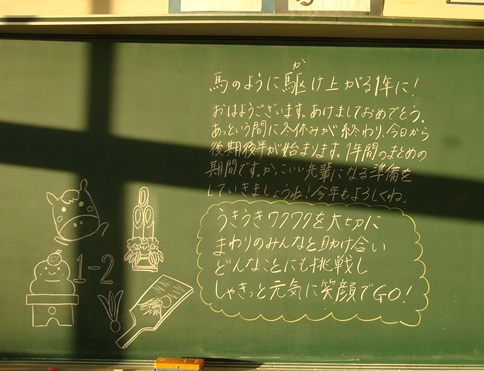 馬のように駆け上がる1年に!
おはようございます。あけましておめでとう。
あっという間に冬休みが終わり、今日から
後期後半が始まります。1年間のまとめの
期間です。かっこいい先輩になる準備を
していきましょうね!今年もよろしくね。
うきうきワクワクを大切に
まわりのみんなと助け合い
どんなことにも挑戦し
しゃきっと元気に笑顔でGO!
1-2